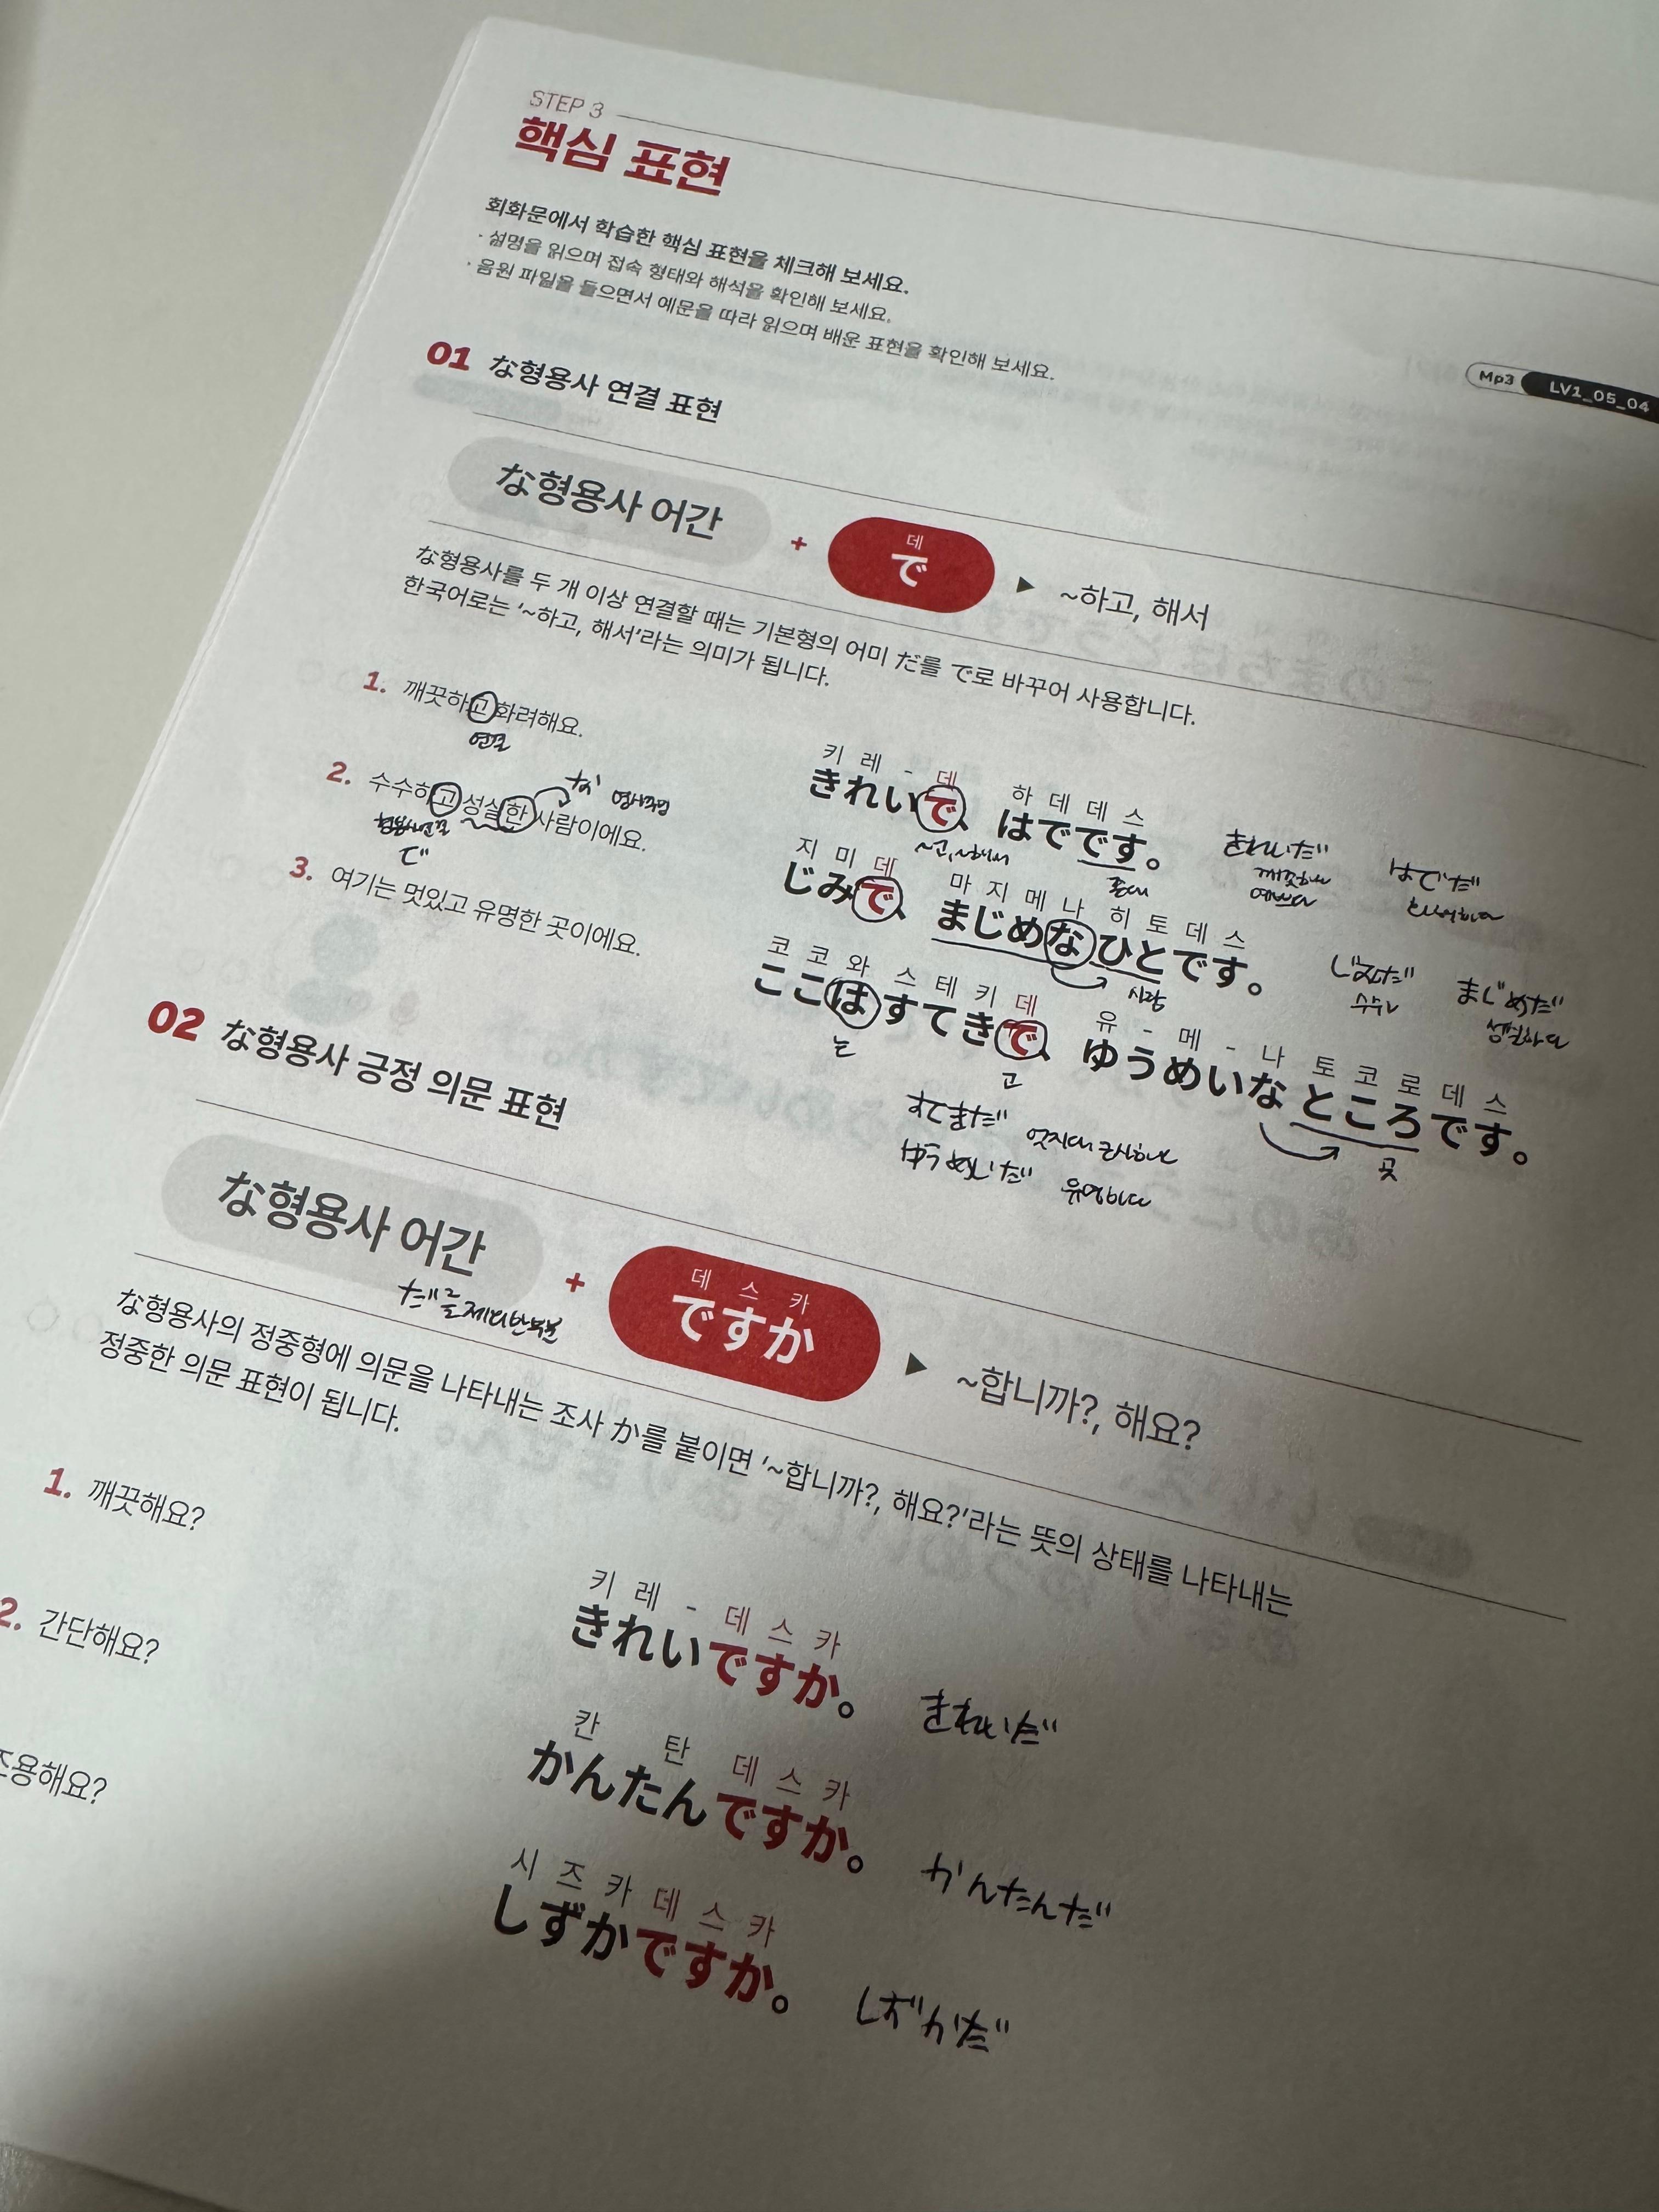 STEP 3
핵심 표현
회화문에서 학습한 핵심 표현을 체크해 보세요.
· 설명을 읽으며 접속 형태와 해석을 확인해 보세요.
· 음원 파일을 들으면서 예문을 따라 읽으며 배운 표현을 확인해 보세요.
Mp3 LV1_05_04
01 な형용사 연결 표현
데
な형용사 어간 + で ▶ ~하고, 해서
な형용사를 두 개 이상 연결할 때는 기본형의 어미 だ를 で로 바꾸어 사용합니다.
한국어로는 '~하고, 해서'라는 의미가 됩니다.
1. 깨끗하고 화려해요.
연결
키 레 - 데 하 데 데 스
きれいで、はでです。
~고, ~해서
존대
きれいだ
깨끗하다
예쁘다
はでだ
화려하다
2. 수수하고 성실한 사람이에요.
な
で
지 미 데 마 지 메 나 히 토 데 스
じみで、まじめなひとです。
사람
じみだ
まじめだ
성실하다
3. 여기는 멋있고 유명한 곳이에요.
코 코 와 스 테 키 데 유 - 메 - 나 토 코 로 데 스
ここはすてきで、ゆうめいなところです。
는
고
곳
유명하다
02 な형용사 긍정 의문 표현
데 스 카
な형용사 어간 + ですか ▶ ~합니까?, 해요?
だ를 제외한 부분
な형용사의 정중형에 의문을 나타내는 조사 か를 붙이면 '~합니까?, 해요?'라는 뜻의 상태를 나타내는
정중한 의문 표현이 됩니다.
1. 깨끗해요?
키 레 - 데 스 카
きれいですか。
きれいだ
2. 간단해요?
칸 탄 데 스 카
かんたんですか。
かんたんだ
조용해요?
시 즈 카 데 스 카
しずかですか。
しずかだ